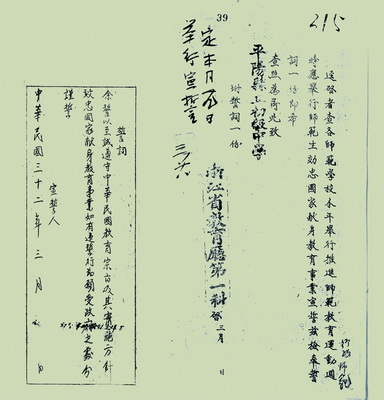 215
39
逕啓者查各師範學校本年舉行推進師範教育運動週
時應舉行師範生効忠國家獻身教育事業宣誓茲檢奉誓
詞一份即希
查照為荷此致
平陽縣立初級中學
附誓詞一份
浙江省教育廳第一科啓 三月 日
定本月 日
舉行宣誓
誓詞
余誓以至誠遵守中華民國教育宗旨及其實施方針
致忠國家獻身教育事業如有違誓行為願受政府之處分
謹誓
宣誓人
中華民國三十二年三月 日